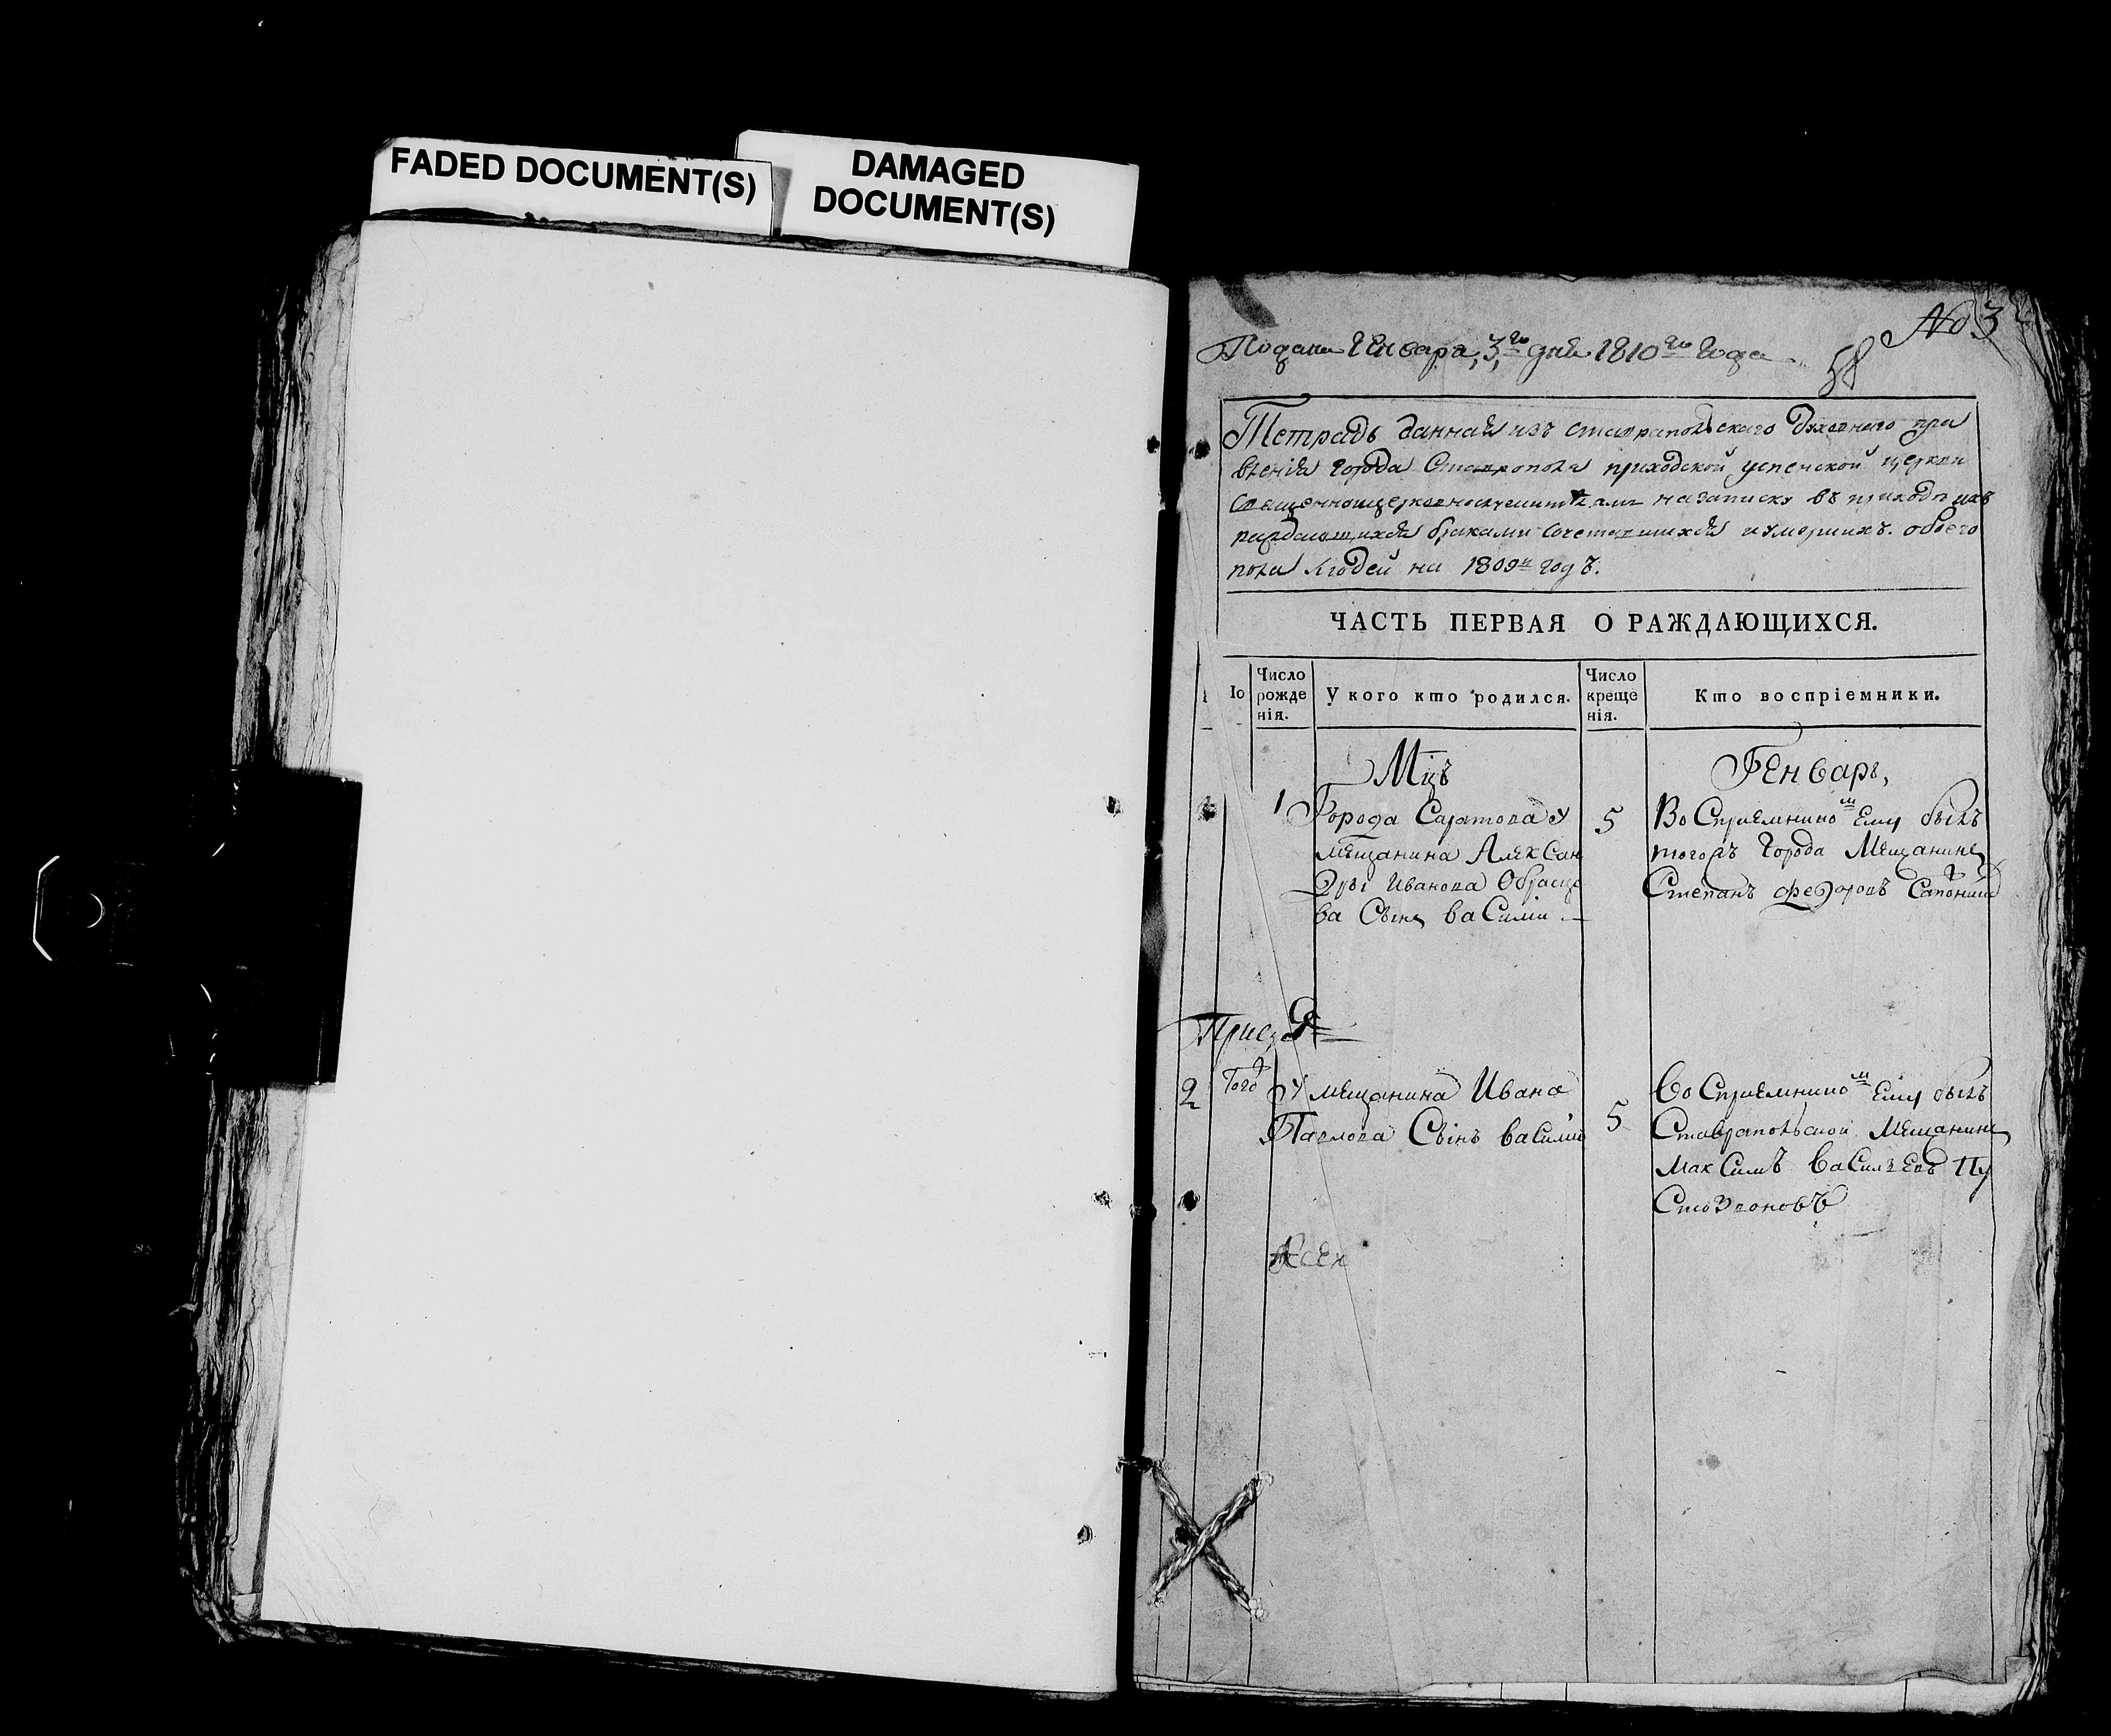 FADED DOCUMENT(S)
DAMAGED
DOCUMENT(S)
No 3
Подана Генваря 3го дня 1810го года
58
Тетрадь данная изъ ставрапольскаго духовнаго пра
вления города Ставрополя приходской успенской церкви
священноцерковнослужителямъ на записку въ приходѣ ихъ
раждающихся браками сочетавшихся и умершихъ обоего
пола людей на 1809й годъ.
ЧАСТЬ ПЕРВАЯ О РАЖДАЮЩИХСЯ.
Число
рожде
нія.
У кого кто родился.
Число
креще
нія.
Кто воспріемники.
Мцъ
Генварь,
1 Города Саратова у
мещанина Алексан
дры Иванова Образцо
ва Сынъ Василии
5
Восприемникомъ ему былъ
того жъ города Мещанинъ
Степанъ Федоровъ
2 Тогож У мещанина Ивана
Павлова Сынъ василий
5
Восприемникомъ ему былъ
Ставрапольской Мещанинъ
Максимъ Васильевъ Пу